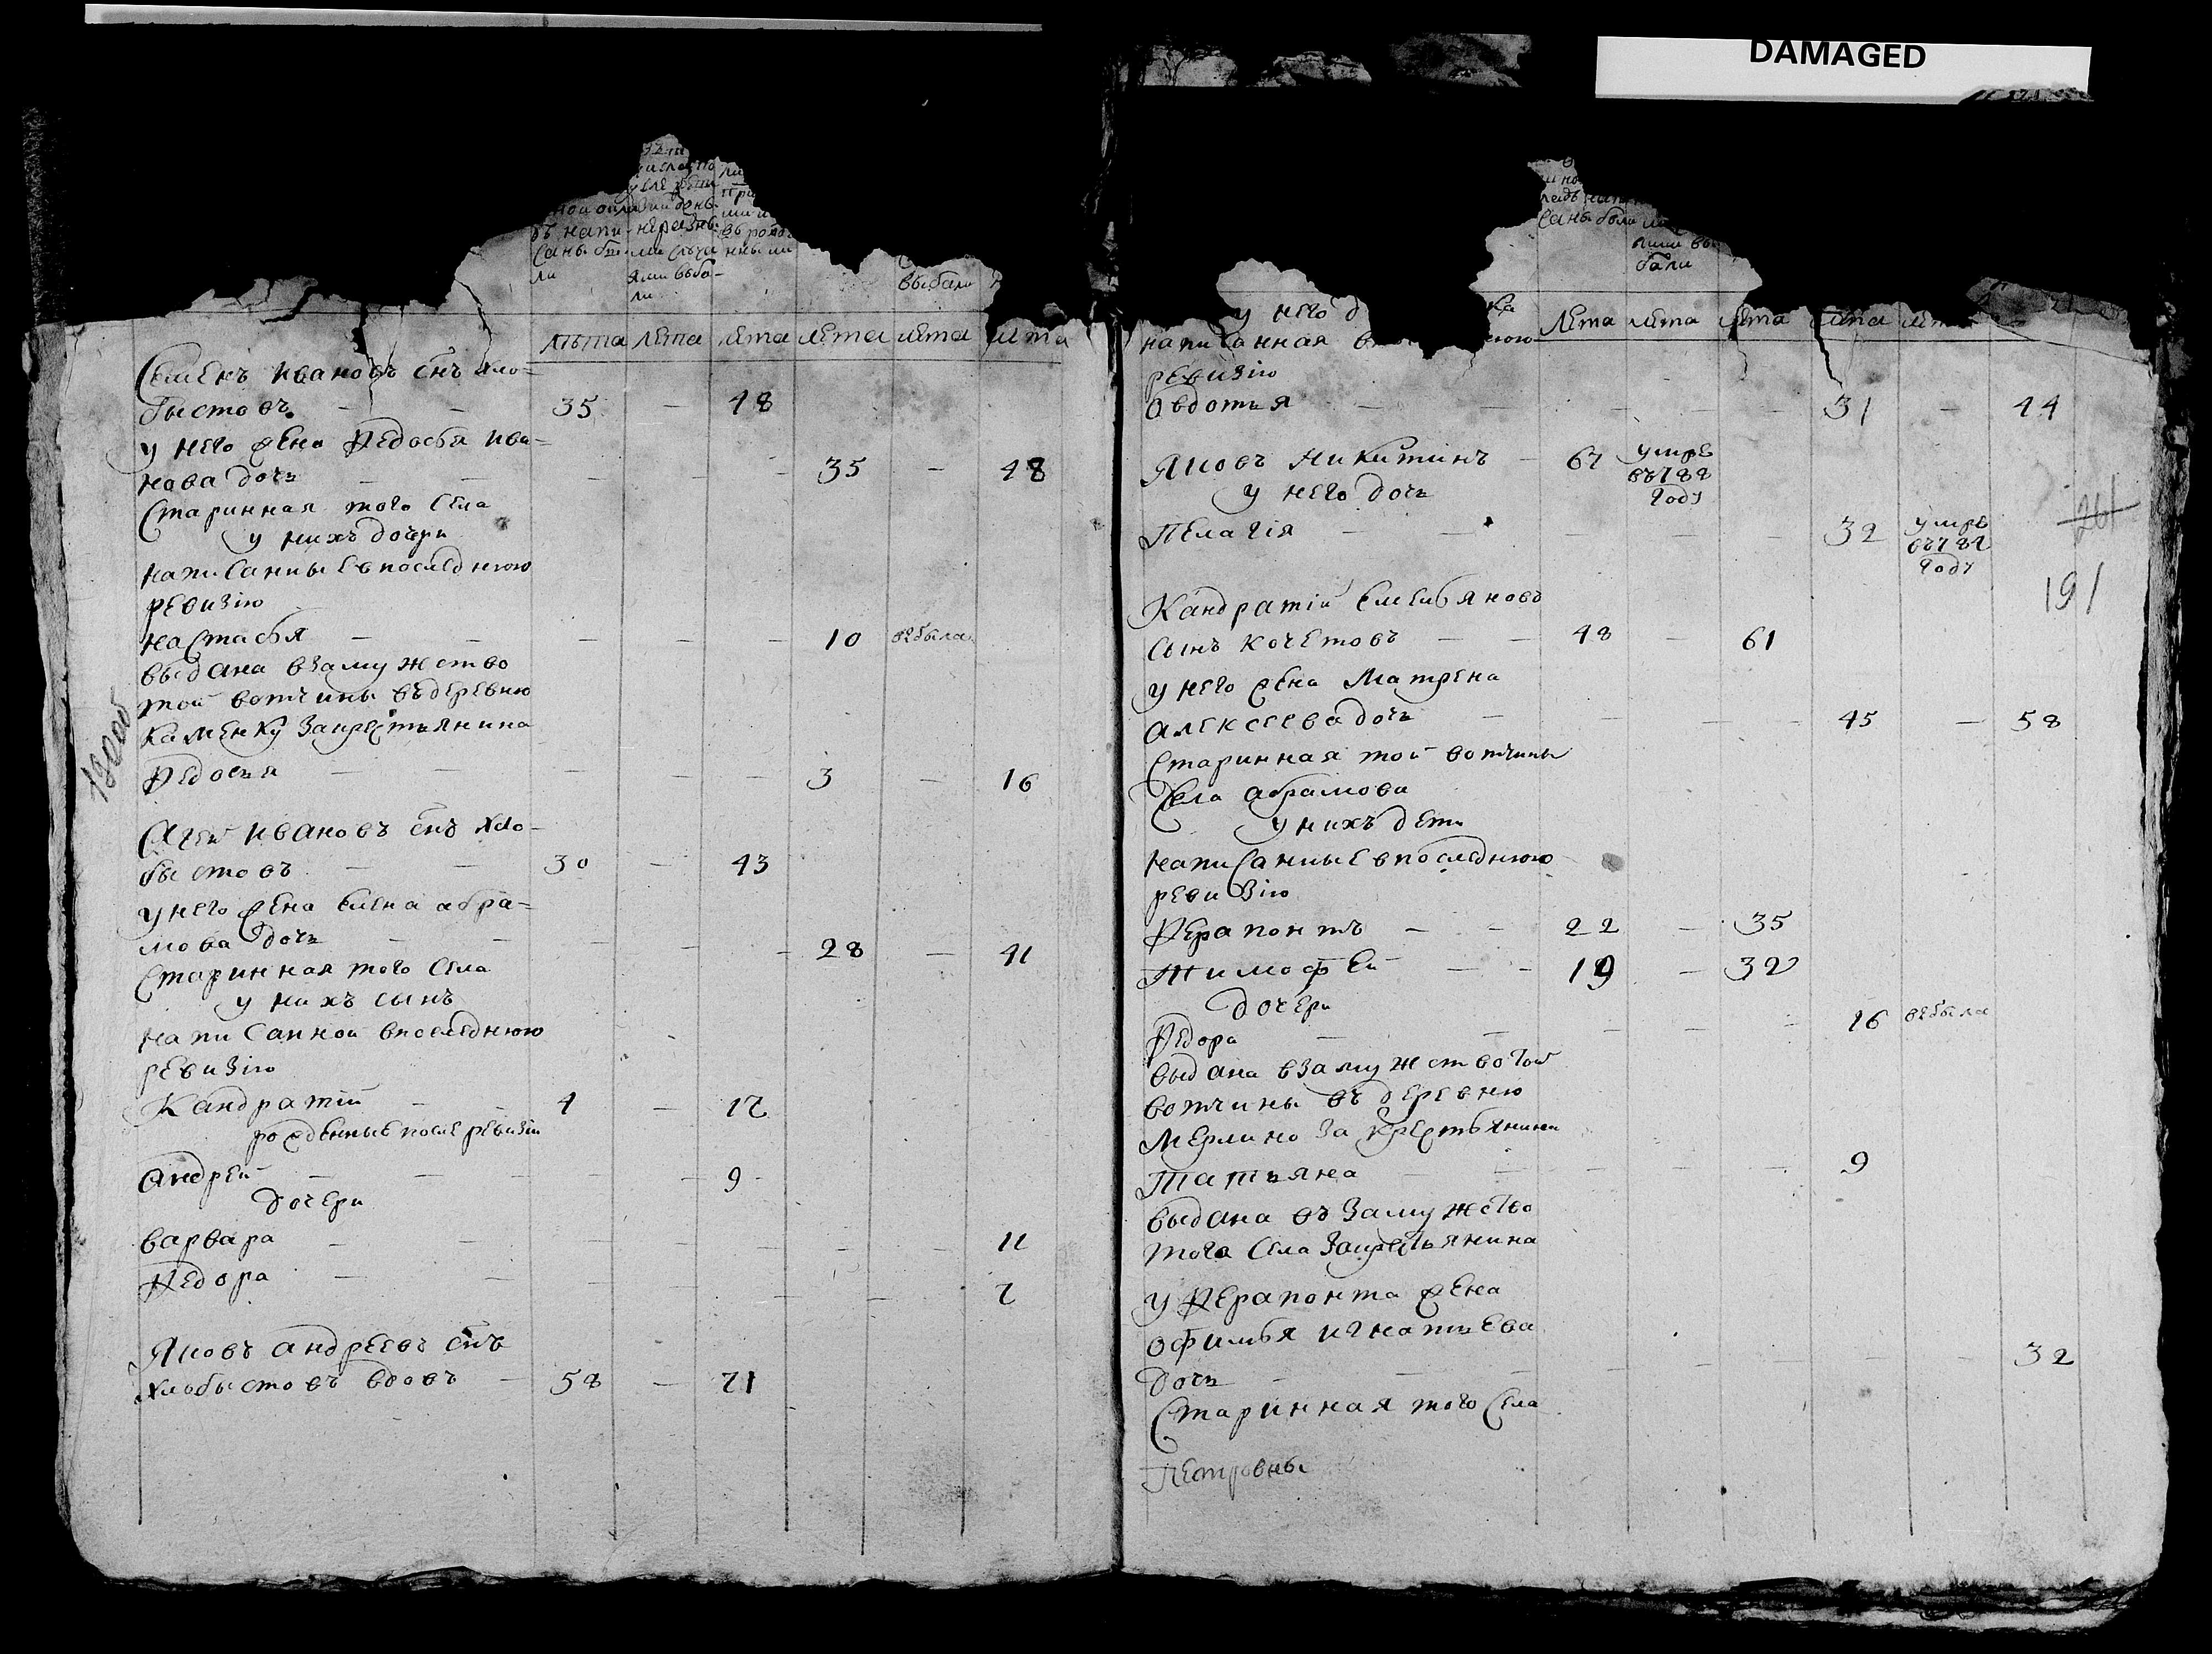 DAMAGED
написаны были
неразными случаями выбыли
выбыли
лѣта лѣта лѣта лѣта лѣта лѣта
Семенъ Ивановъ снъ Хло=
быстовъ — — 35 — 48
у него жена Федосья Ива=
нова дочь — — — — — 35 — 48
Старинная того села
у нихъ дочери
написанные в последнюю
ревизiю
Настасья — — — — — 10 выбыла
выдана взамужство
той вотчины въ деревню
Каменку за крестьянина
Федосья — — — — — 3 — 16
Агей Ивановъ снъ Хло-
быстовъ — — 30 — 43
у него жена Елена Абра=
мова дочь — — — — — 28 — 41
Старинная того села
у нихъ сынъ
написанной впоследнюю
ревизiю
Кандратiй — — 4 — 17
рожденные после ревизiи
Андрей — — — — 9
дочери
Варвара — — — — — — — 11
Федора — — — — — 7
Яковъ Андреевъ снъ
Хлобыстовъ вдовъ — 58 — 71
180об
написаны были
выбали
у него
лѣта лѣта лѣта лѣта
написанная
ревизiю
Овдотья — — — — — 31 — 44
Яковъ Никитинъ — 67 умре
въ788
году
у него дочь
Пелагiя — — — — — 32 умре
въ787
году
261
191
Кандратiй Емельяновъ
сынъ Кочетовъ — — 48 — 61
у него жена Матрена
Алексеева дочь — — — — 45 — 58
Старинная той вотчины
села Абрамова
у нихъ дети
написанные впоследнюю
ревизiю
Ферапонтъ — — 22 — 35
Тимофей — — 19 — 32
дочери
Федора — — — — — 16 выбыла
выдана взамужство той
вотчины въ деревню
Мерлино за крестьянина
Татьяна — — — — — 9
выдана въ замужство
того села за крестьянина
у Ферапонта жена
Офимья Игнатьева
дочь — — — — — — — 32
Старинная того села
Петровны